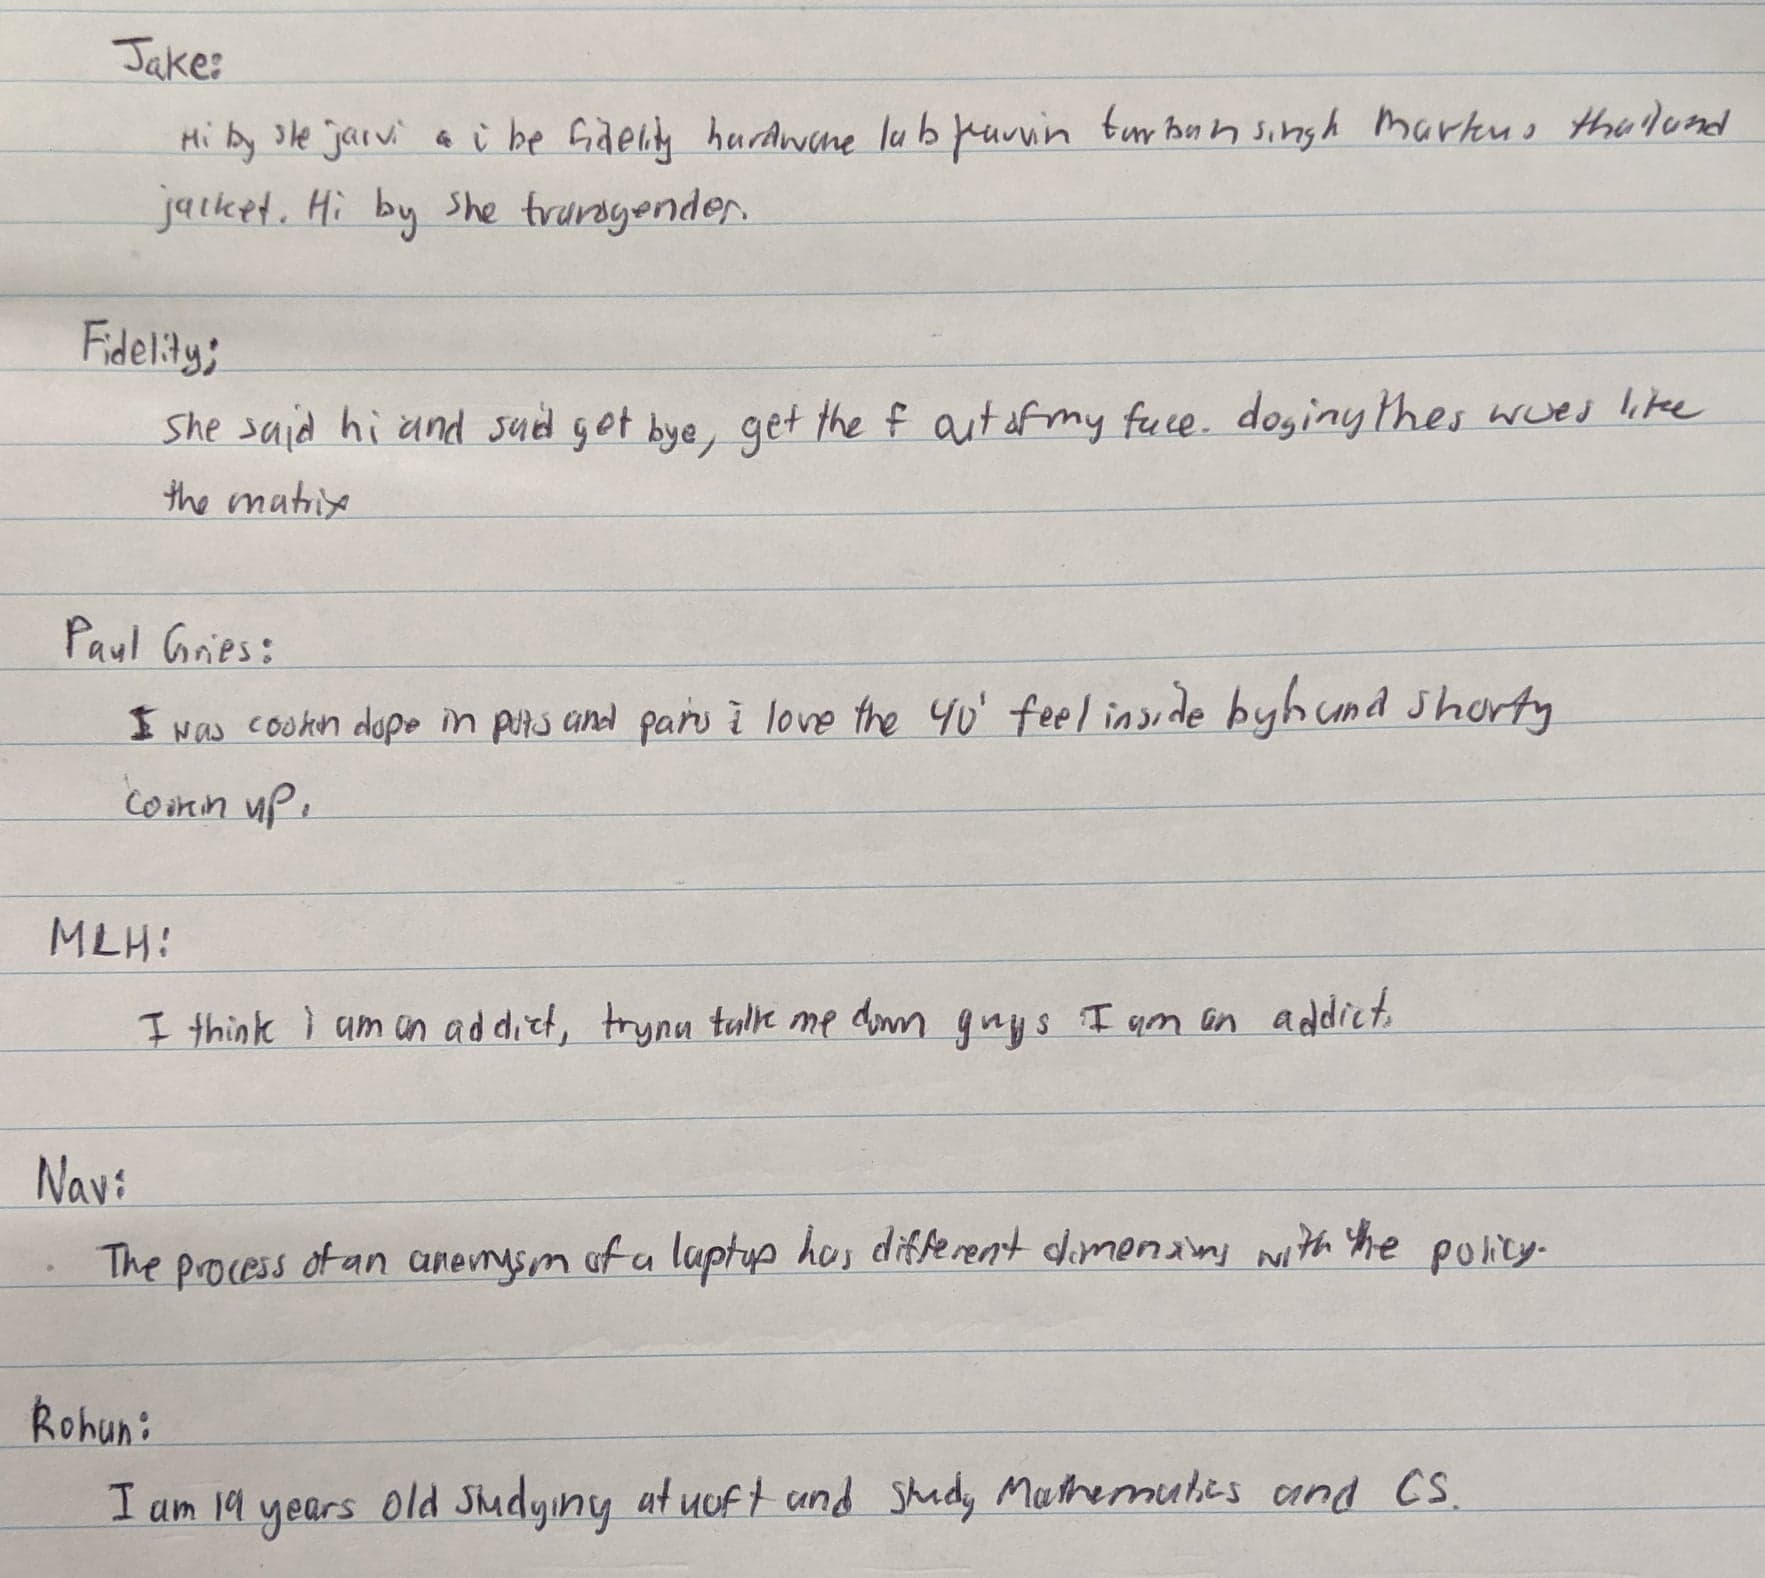 Jake:
Hi by she jarvi a i be fidelity hardware lab turban singh Markus thailand
jacket. Hi by she transgender.
Fidelity;
She said hi and said get bye, get the f out of my face. doging thes woes like
the matrix
Paul Gries:
I was cookin dope in pots and pans i love the 40' feel inside by hand shorty
cookin up.
MLH:
I think i am an addict, tryna talk me down guys I am an addict.
Nav:
The process of an of a laptop has different dimensions with the policy.
Rohan:
I am 19 years old studying at uoft and study Mathematics and CS.